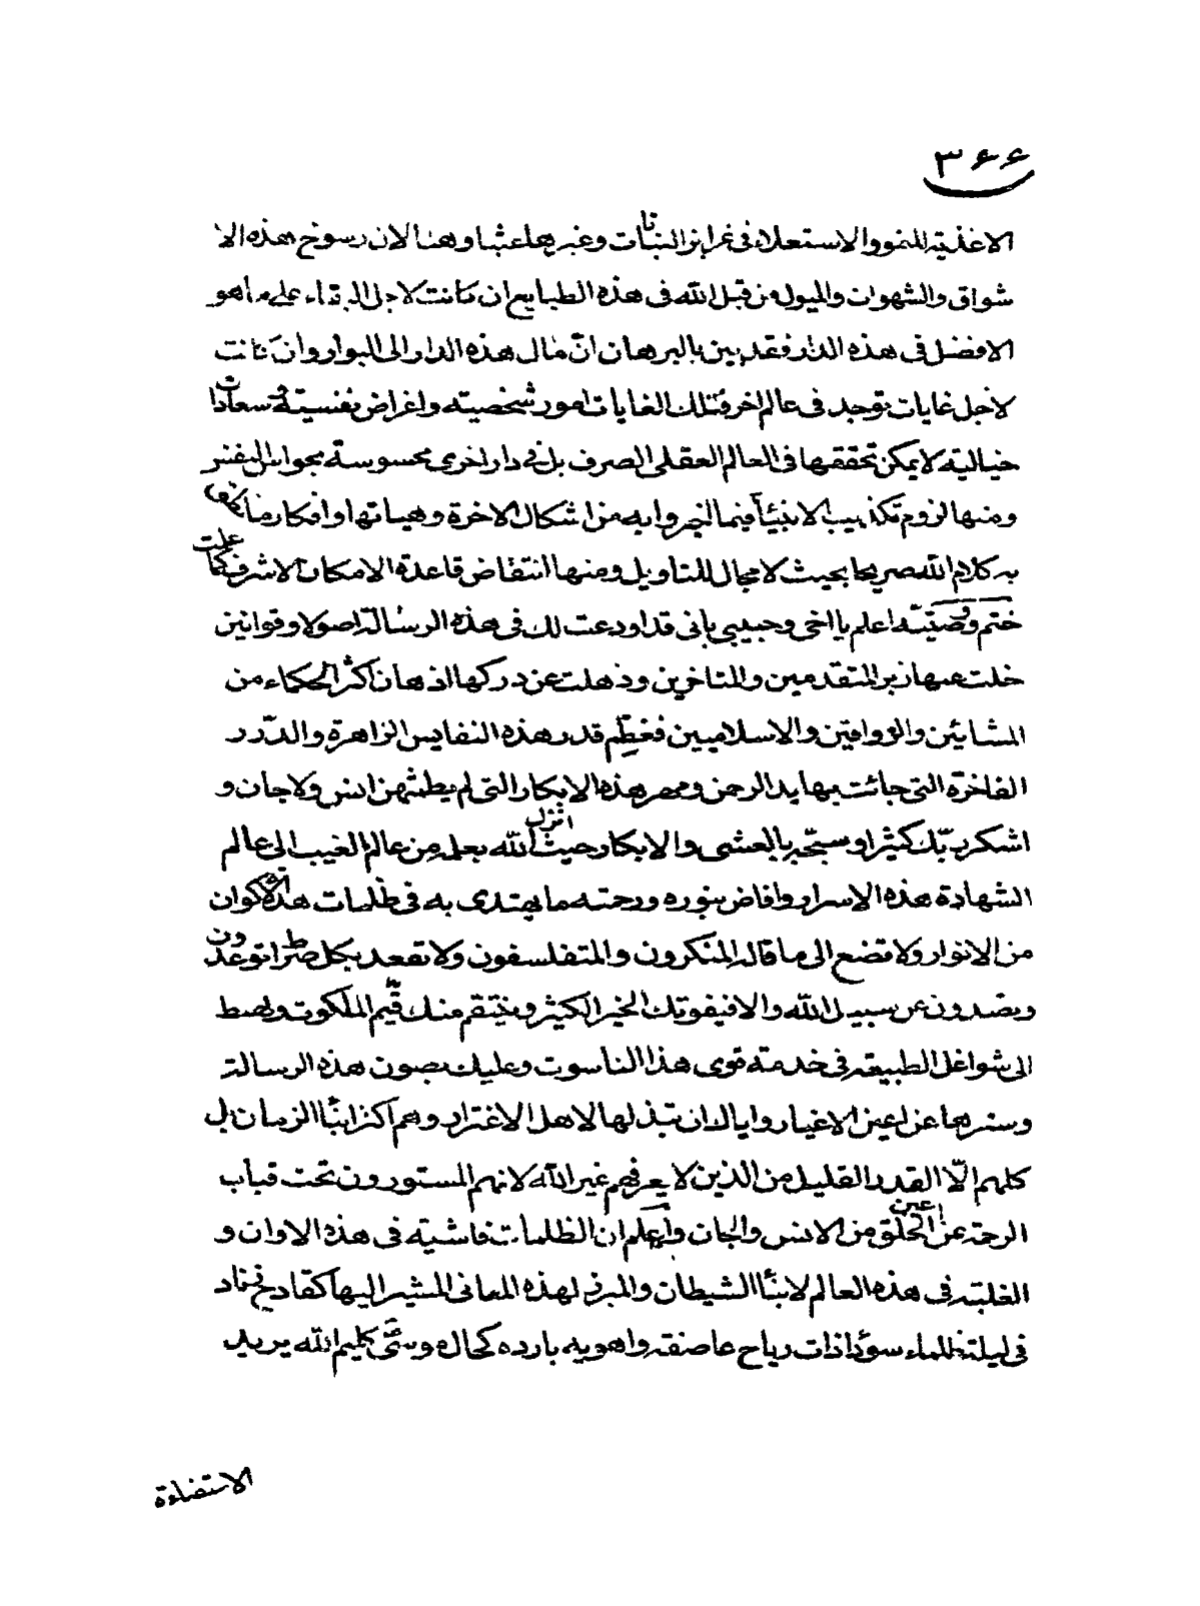 ۳۶۶
الاغذية للنمو والاستعلاء فى غرايز النباتات وغيرها عبثا وهنا لان رسوخ هذه الا
شواق والشهوات والميول من قبل الله فى هذه الطبايع ان كانت لاجل البقاء على ما هو
الافضل فى هذه الدار فقد بين بالبرهان انّ مال هذه الدار الى البوار وان كانت
لاجل غايات توجد فى عالم اخر فتلك الغايات امور شخصيته واغراض نفسيته وسعادات
خياليته لا يمكن تحققها فى العالم العقلى الصرف بل فى دار اخرى محسوسة بحواس النفس
ومنها لزوم تكذيب الانبياء فيما اخبروا به من اشكال الاخرة وهياتها وافكار ما نطق
به كلام الله صريحا بحيث لا مجال للتاويل ومنها انتقاض قاعدة الامكان الاشرف كما علمت
ختم وصيّته اعلم يا اخى وحبيبى بانى قد اودعت لك فى هذه الرسالة اصولا وقوانين
خلت عنها زبر المتقدمين والمتاخرين وذهلت عن دركها اذهان اكثر الحكماء من
المشائين والرواقين والاسلاميين فعظّم قدر هذه النفايس الزاهرة والدّرر
الفاخرة التى جائت بها يد الرحمن ومهر هذه الابكار التى لم يطمثهن انس ولا جان و
اشكر ربّك كثيرا وسبّحه بالعشى والابكار حيث انزل الله بعلمه من عالم الغيب الى عالم
الشهادة هذه الاسرار وافاض بنوره ورحمته ما يهتدى به فى ظلمات هذه الاكوان
من الانوار ولا تضع الى ما قاله المنكرون والمتفلسفون ولا تقعد بكل صراط توعدون
وتصدون عن سبيل الله والا فيفوتك الخير الكثير وينتقم منك قيّم الملكوت
الى شواغل الطبيعه فى خدمة قوى هذا الناسوت وعليك بصون هذه الرسالة
وسترها عن اعين الاغيار واياك ان تبذلها الا هل الاغترار وهم اكثر ابناء الزمان بل
كلهم الّا القدر القليل من الذين لا يعرفهم غير الله لانهم المستورون تحت قباب
الرحمة عن اعين الخلق من الانس والجان واعلم ان الظلمات فاشيته فى هذه الاوان و
الغلبة فى هذه العالم لابناء الشيطان والمبرز لهذه المعانى المشير اليها كقادح زناد
فى ليلة ظلماء سوداء ذات رياح عاصفه واهويه بارده كحال موسى كليم الله يريد
الاستضاءة